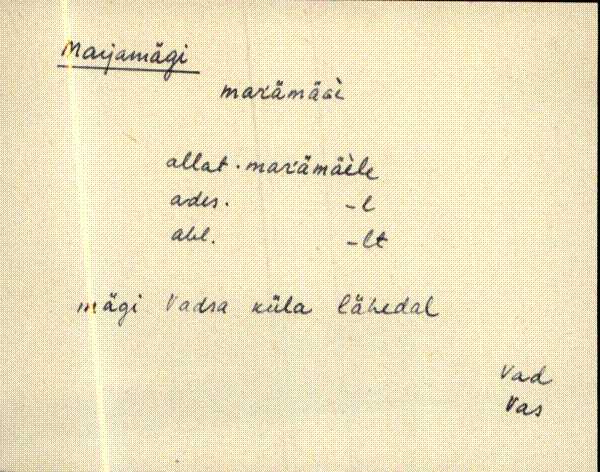 Marjamägi
marämäGi̬
allat. marämäèle
ades. -l
abl. -lt
mägi Vadsa küla lähedal
Vad
Vas